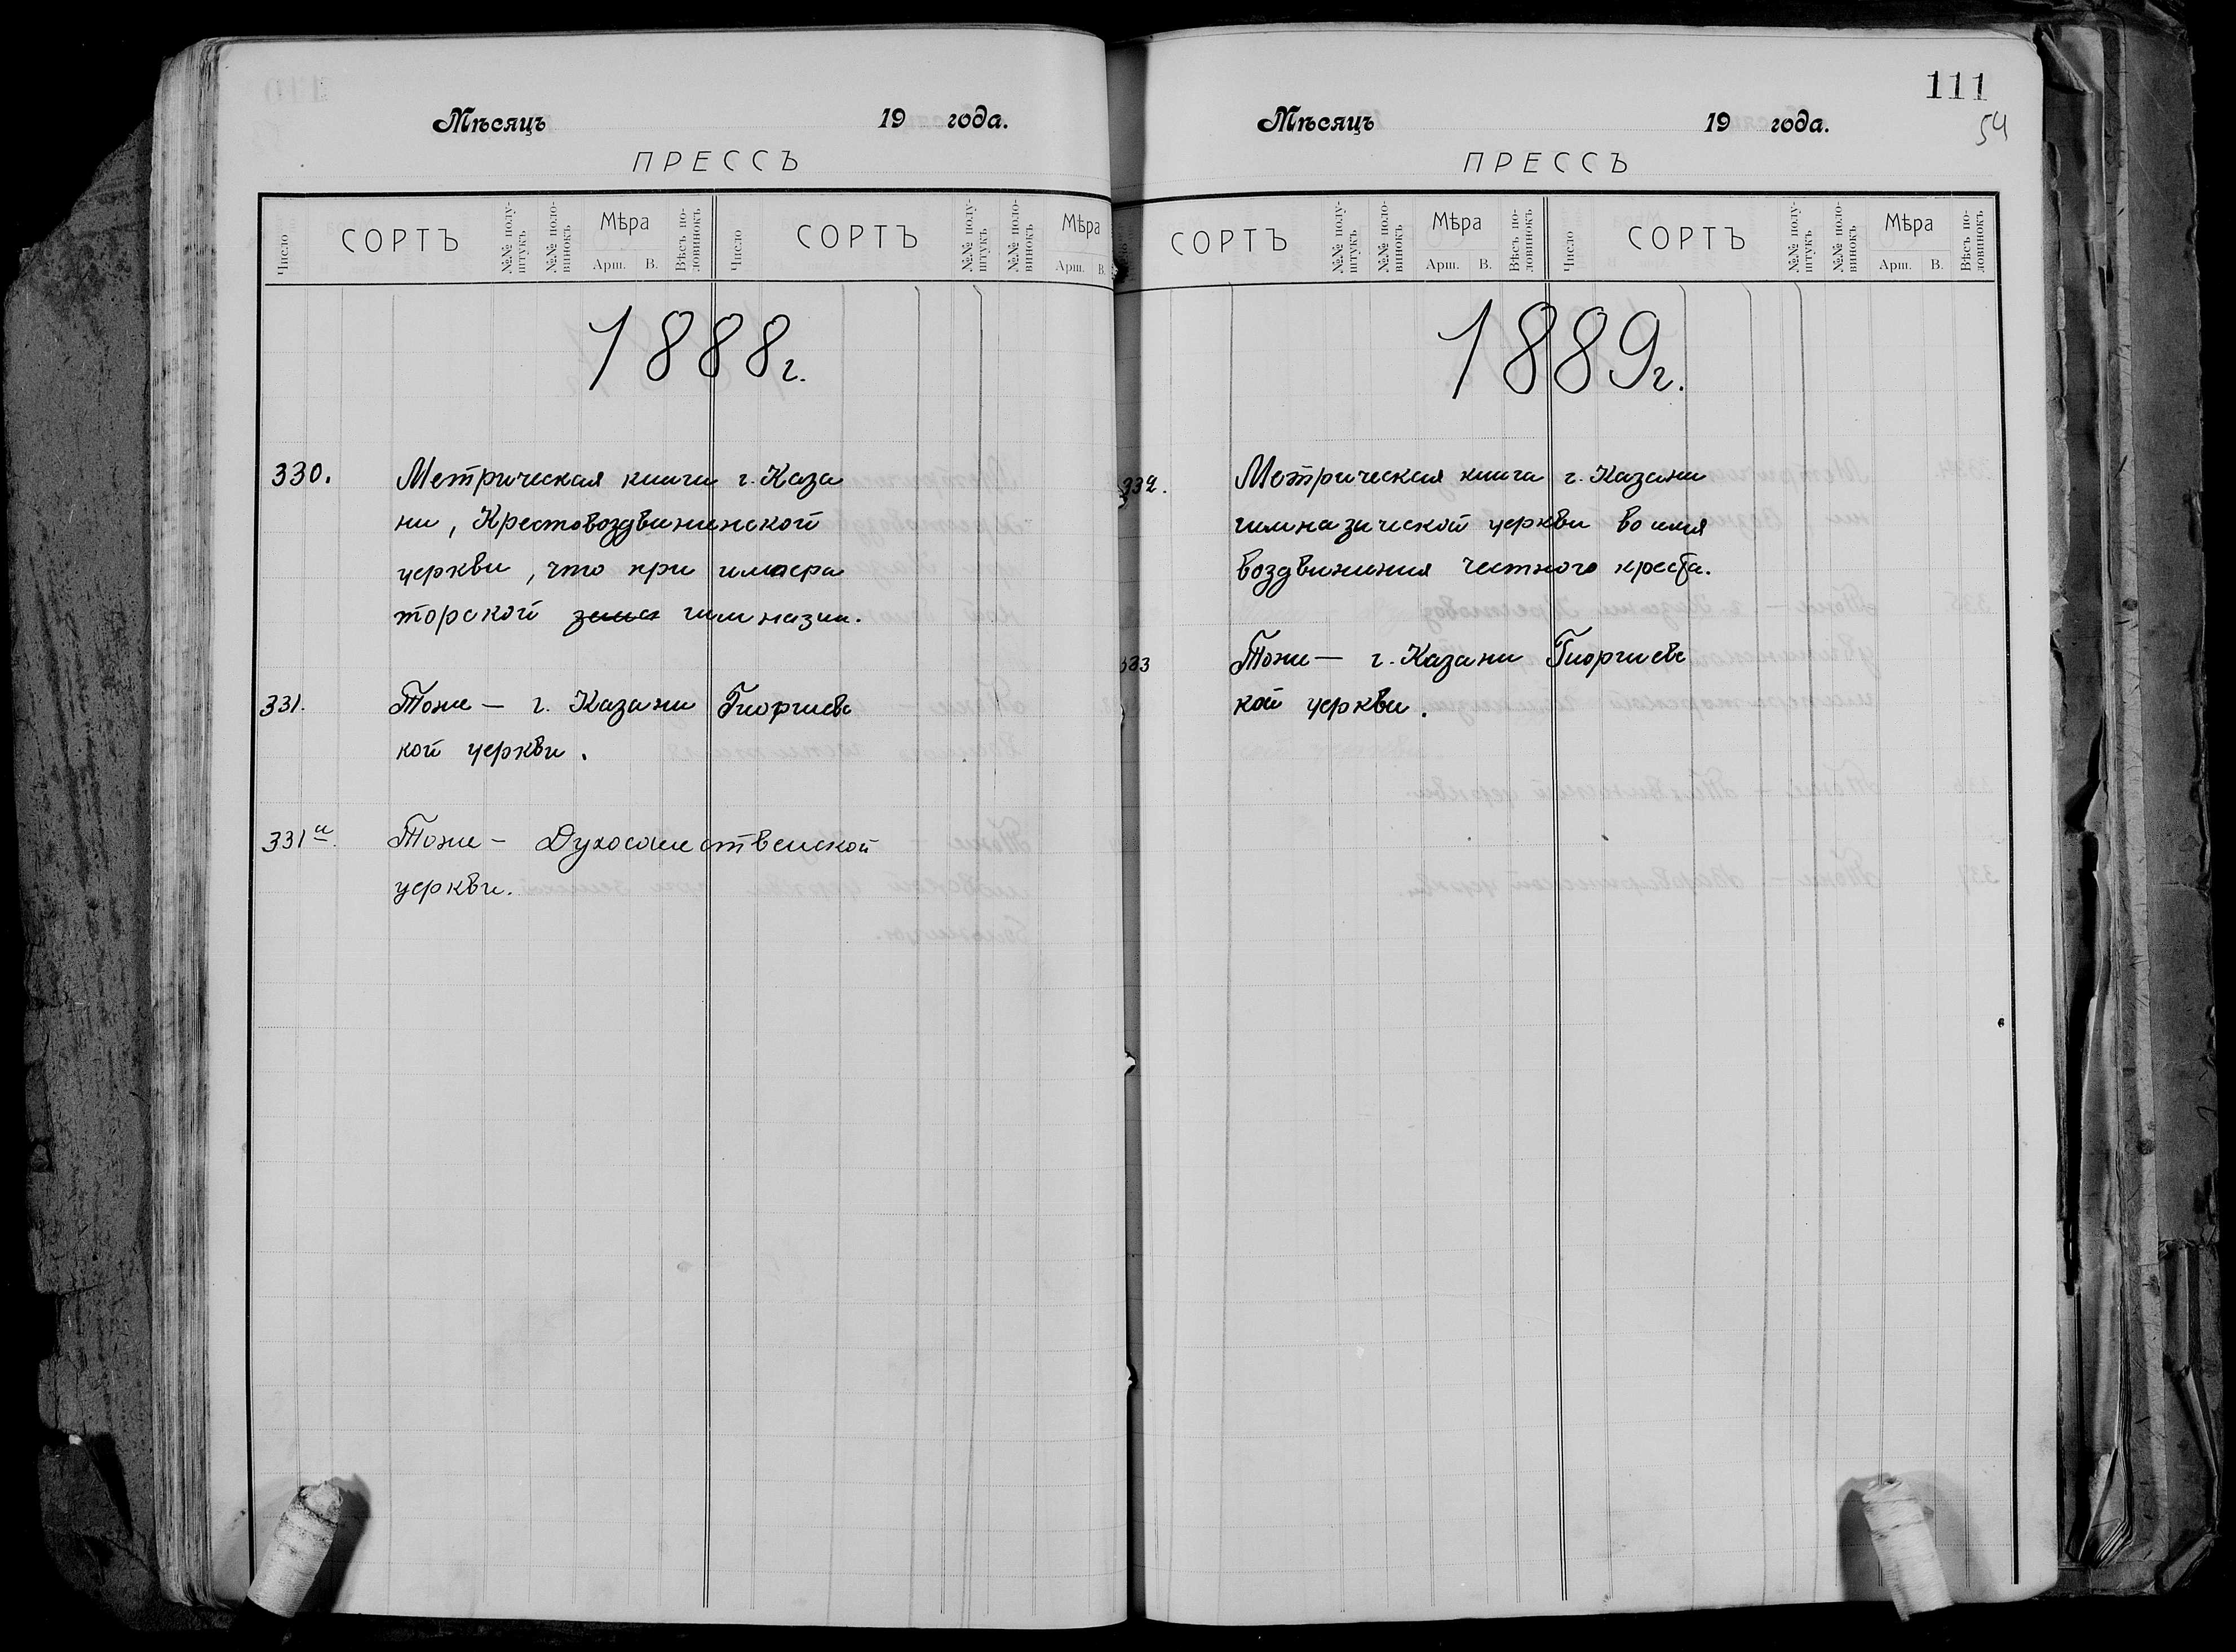 Мѣсяцъ 19 года.
ПРЕССЪ
Число СОРТЪ №№ полу-штукъ №№ поло-винокъ Мѣра Арш. В. Вѣсъ по-ловинокъ Число СОРТЪ №№ полу-штукъ №№ поло-винокъ Мѣра Арш. В.
1888г.
330. Метрическая книга г. Каза
ни, Крестовоздвиженской
церкви, что при импера
торской гимназии.
331. Тоже — г. Казани Георгиевс
кой церкви.
331а Тоже — Духосошественской
церкви.
111
54
Мѣсяцъ 19 года.
ПРЕССЪ
СОРТЪ №№ полу-штукъ №№ поло-винокъ Мѣра Арш. В. Вѣсъ по-ловинокъ Число СОРТЪ №№ полу-штукъ №№ поло-винокъ Мѣра Арш. В. Вѣсъ по-ловинокъ
1889г.
332. Метрическая книга г. Казани
гимназической церкви во имя
воздвижения честного креста.
333 Тоже — г. Казани Георгиевс
кой церкви.